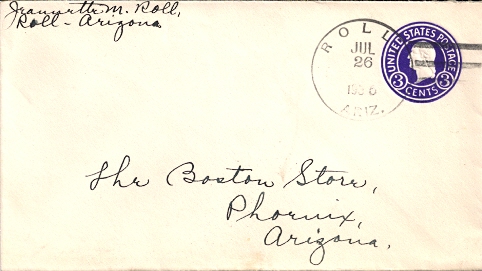 Jeannette M. Roll,
Roll - Arizona
ROLL
JUL
26
ARIZ.
UNITED STATES POSTAGE
3 CENTS 3
The Boston Store,
Phoenix,
Arizona.